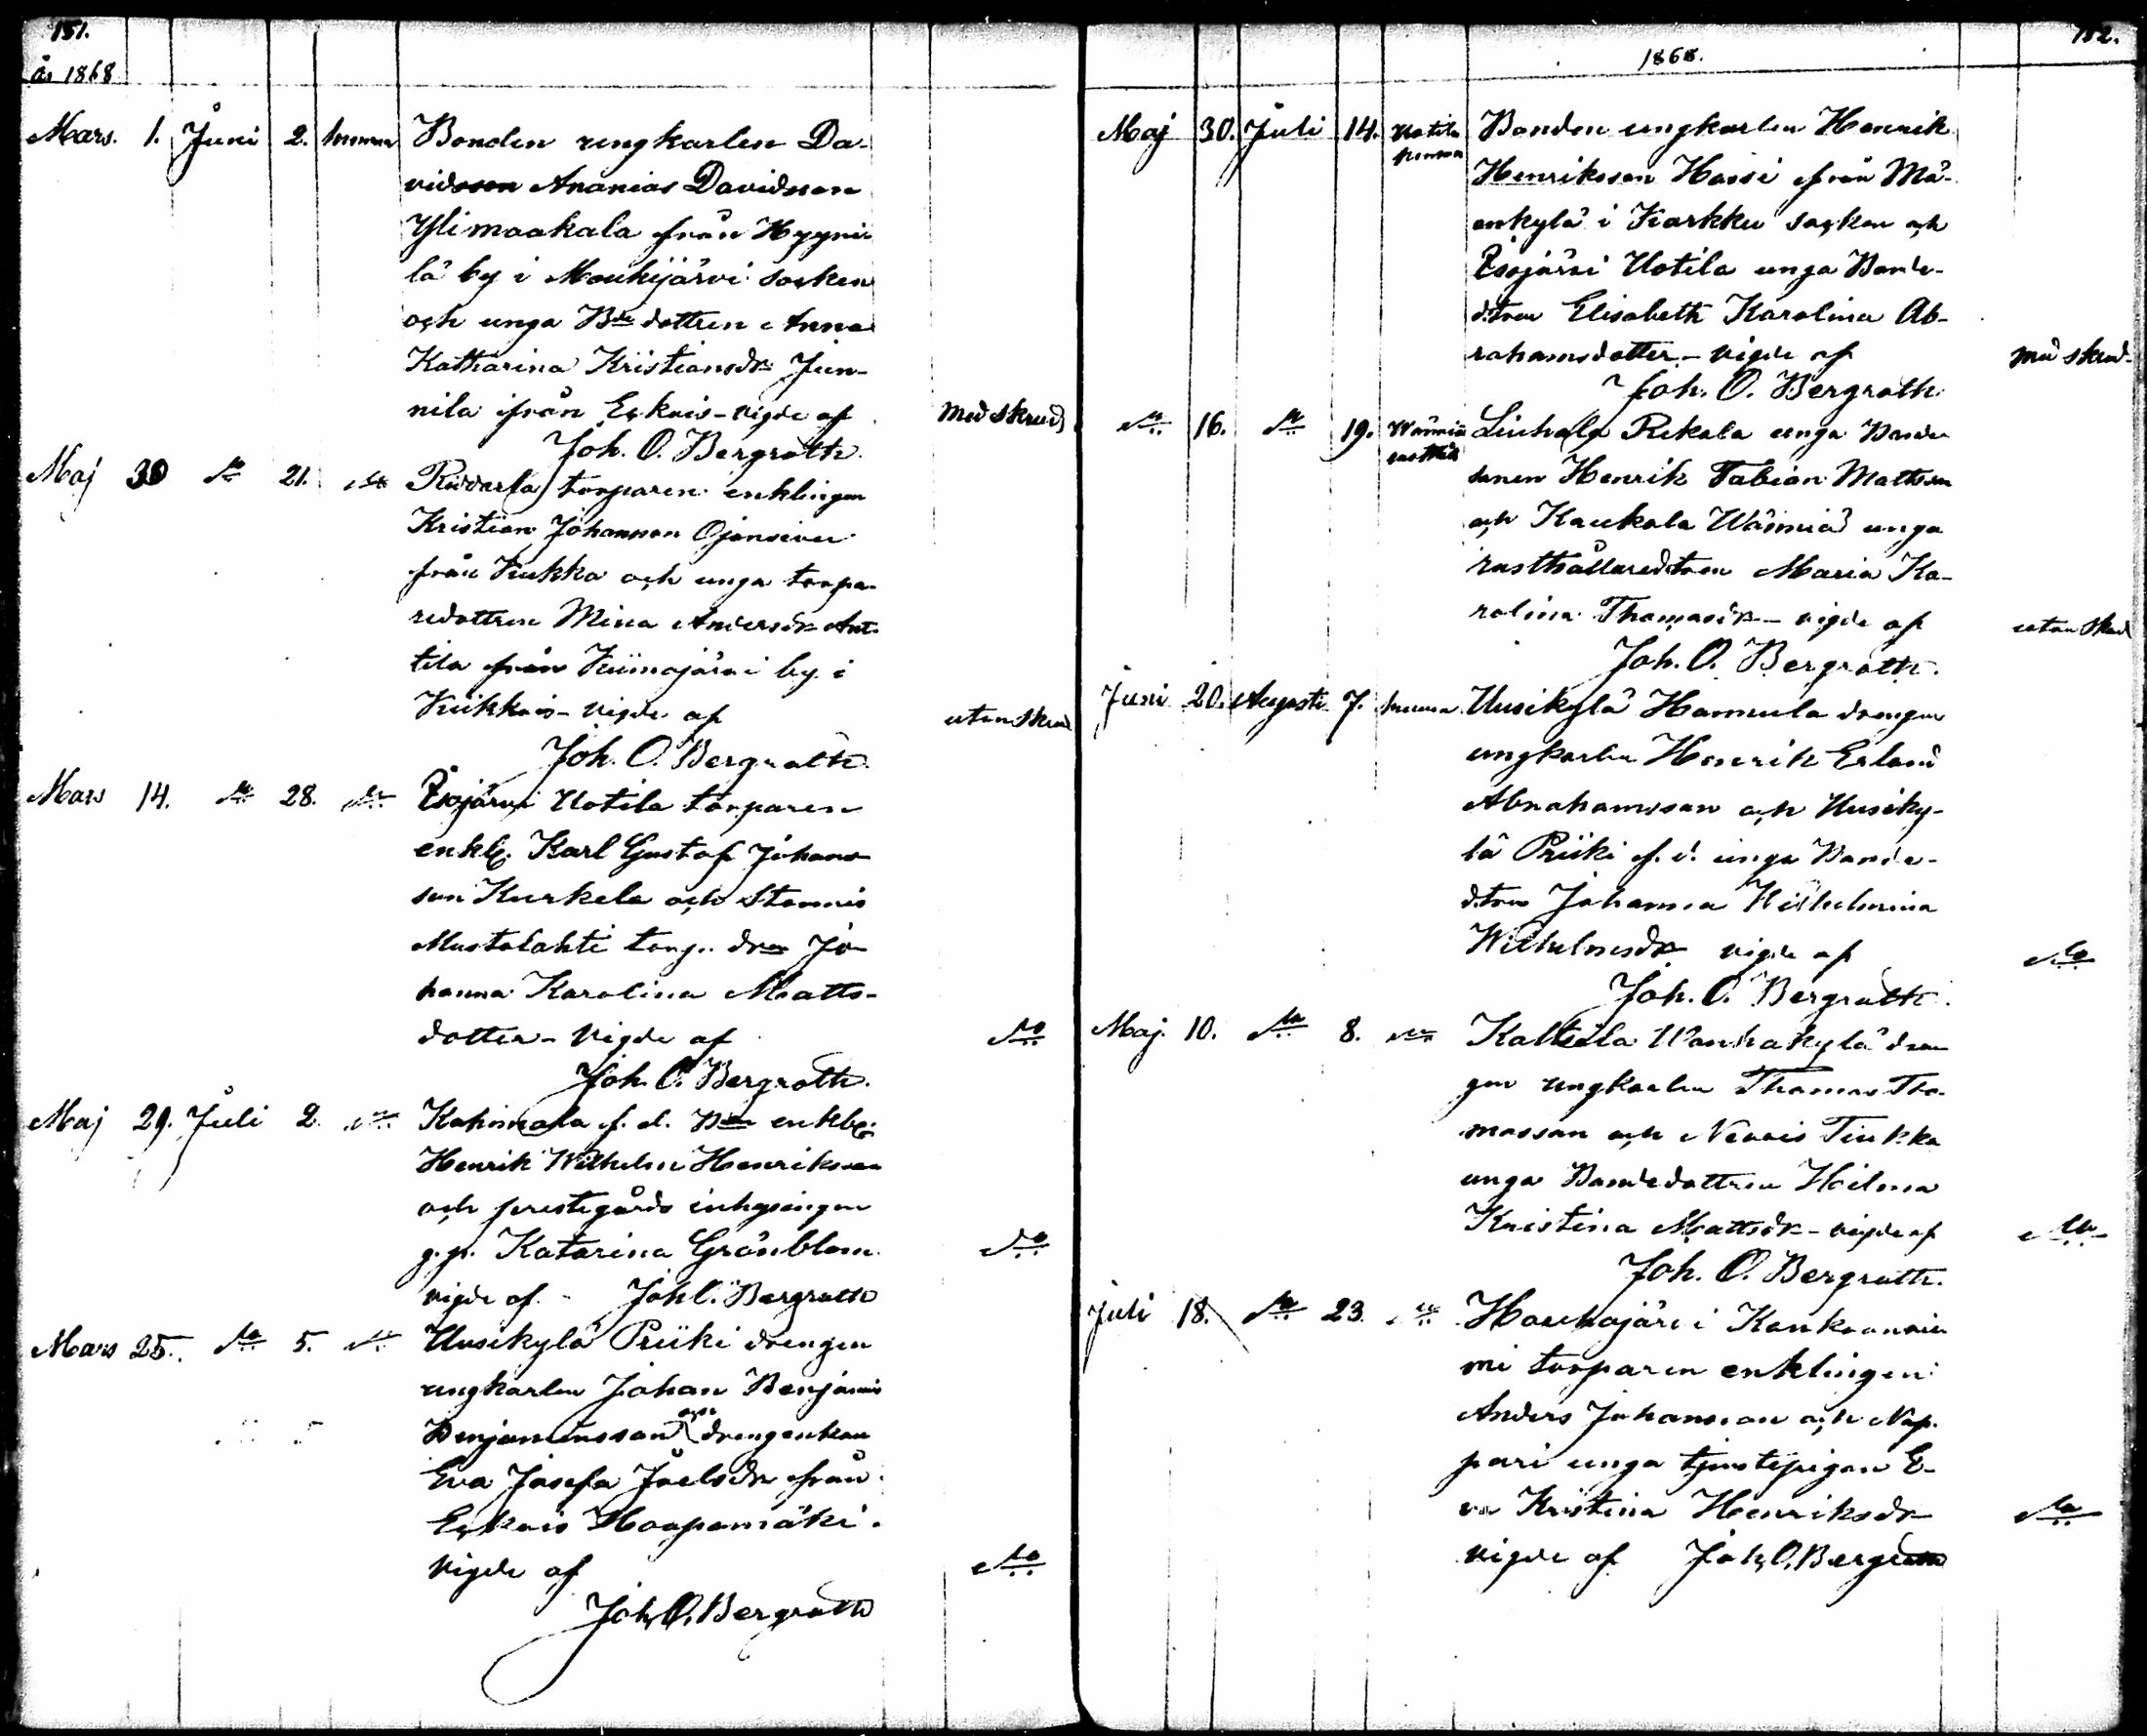 151.
år 1868
Mars. 1. Juni 2. hemma Bonden ungkarlen Da-
vidsson Ananias Davidsson
Ylimaakala från Hyyni-
lä by i Mouhijärvi socken
och unga Bde dottren Anna
Katharina Kristiansdr Jun-
nila ifrån Eskois - vigde af med skrud
Joh. O. Bergroth.
Maj 30 do 21. do torparen enklingen
Kristian Johansson
från Kukko och unga torpa-
redottren Mina Andersdr Ant-
tila från Kiimajärvi by i
Kiikkois - vigde af utan skrud
Joh. O. Bergroth.
Mars 14. do 28. do Isojärvi Uotila torparen
enkl. Karl Gustaf Johans-
son Kurkela och Stormis
Mustalahti torp. dren Jo-
hanna Karolina Matts-
dotter - vigde af do
Joh. O. Bergroth.
Maj 29. Juli 2. do f. d. enkl.
Henrik Wilhelm Henriksson
och prestegårds inhysingen
g. p. Katarina Grönblom do
vigde af - Joh O. Bergroth
Mars 25. do 5. do Uusikylä Priiki drengen
ungkarlen Johan Benjamin
Benjaminsson och drengenkan
Eva Josefa Joelsdr från
Eskois Haapamäki.
vigde af do
Joh. O. Bergroth
152.
1868.
Maj 30. Juli 14. Uotila Bonden ungkarlen Henrik
Henriksson Hassi från Mä-
enkylä i Karkku socken och
Isojärvi Uotila unga Bonde-
dtren Elisabeth Karolina Ab-
rahamsdotter - vigde af med skrud
Joh. O. Bergroth
do 16. do 19. Wäinniä Liuhala Rekola unga Bonde
sonen Henrik Fabian Mattsson
och Kaukola Wäinniä unga
rusthållaredtren Maria Ka-
rolina Thomasdr - vigde af utan skrud
Joh. O. Bergroth.
Juni 20. Augusti 7. hemma Uusikylä Hannula drengen
ungkarlen Henrik Erland
Abrahamsson och Uusiky-
lä Priiki f. d. unga Bonde-
dtren Johanna Wilhelmina
Wilhelmsdr vigde af do
Joh. O. Bergroth.
Maj. 10. do 8. do Kalliala Wanhakylä dren-
gen ungkarlen Thomas Tho-
masson och Nevois Tiukka
unga Bondedottren Hilma
Kristina Mattsdr - vigde af do
Joh. O. Bergroth.
Juli 18. do 23. do Houhajärvi Kankaannie-
mi torparen enklingen
Anders Johansson och Nop-
pari unga tjenstepigan E-
va Kristina Henriksdr do
vigde af Joh. O. Bergroth